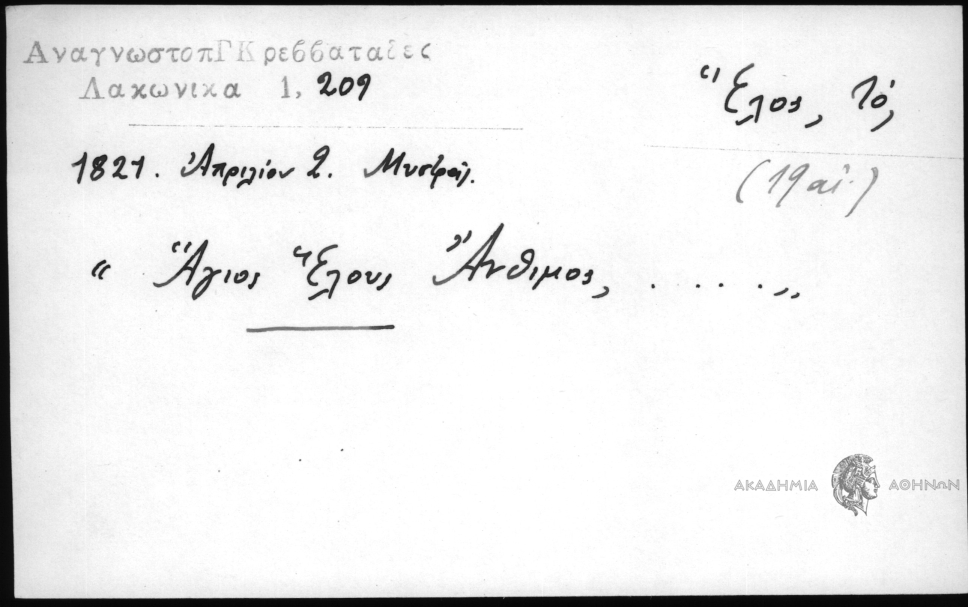 ΑναγνωστοπΓΚρεββαταδες
Λακωνικα 1, 209
Ἕλος, Τό,
1821. Ἀπριλίου 2. Μυστρᾶς.
(19 αἰ.)
« Ἅγιος Ἕλους Ἄνθιμος, . . . . . „
ΑΚΑΔΗΜΙΑ ΑΘΗΝΩΝ